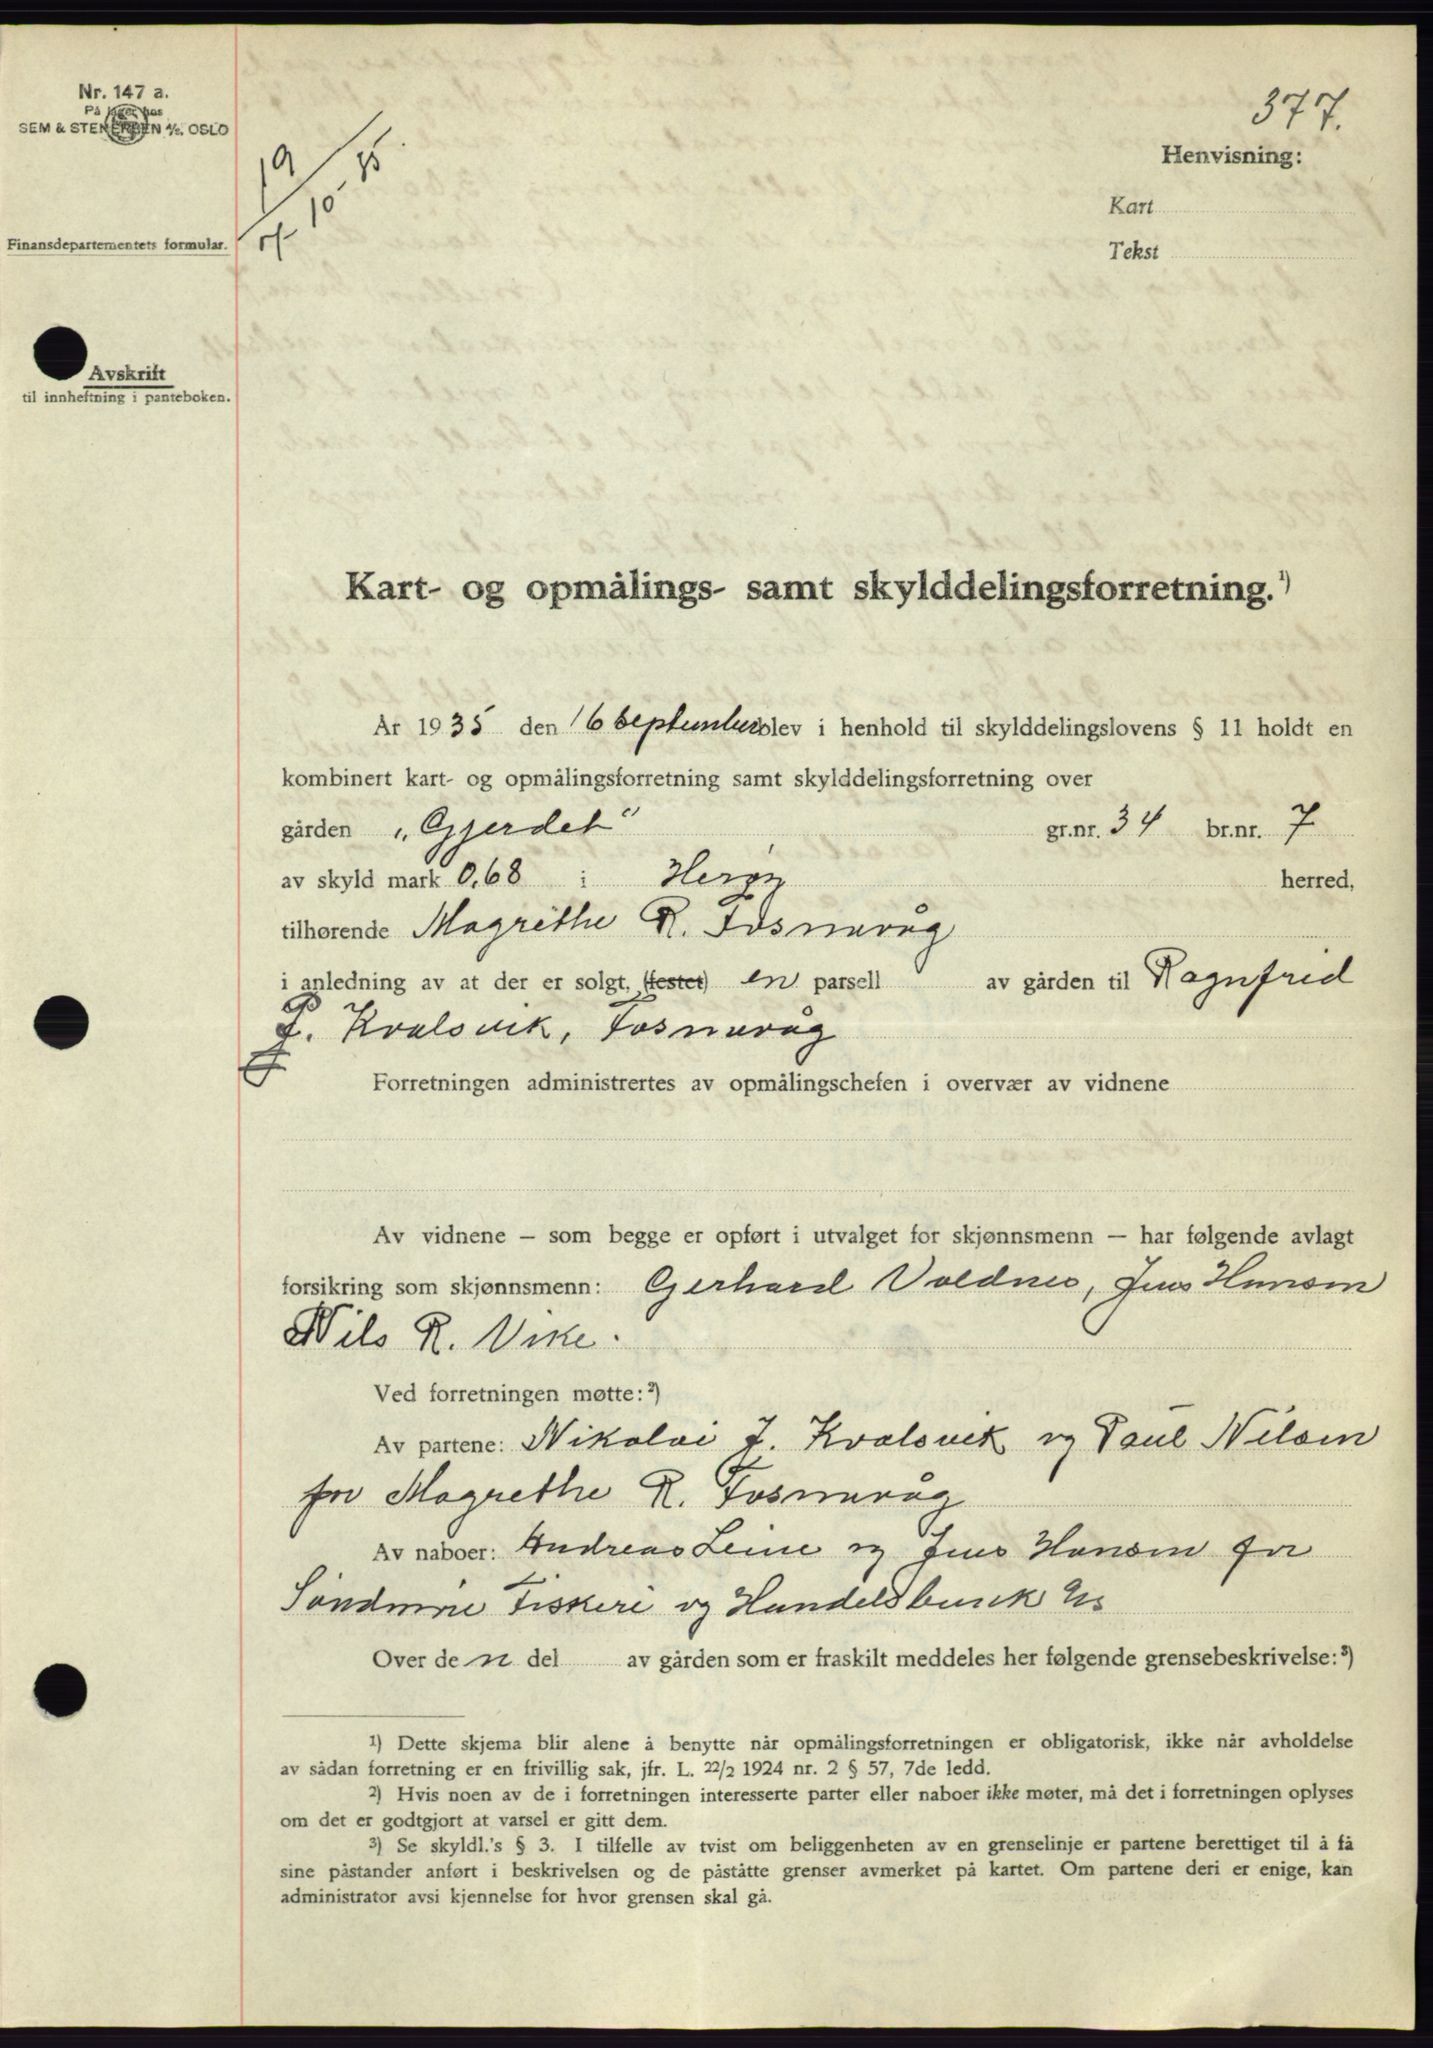 Nr. 147 a.
På lager hos
SEM & STENERSEN A/S, OSLO
Finansdepartementets formular.
Avskrift
til innheftning i panteboken.
19/10-35
377.
Henvisning:
Kart
Tekst
Kart- og opmålings- samt skylddelingsforretning.¹)
År 1935 den 16 September blev i henhold til skylddelingslovens § 11 holdt en
kombinert kart- og opmålingsforretning samt skylddelingsforretning over
gården „Gjerdet“ gr.nr. 34 br.nr. 7
av skyld mark 0,68 i Herøy herred,
tilhørende Magrethe R. Fosnavåg
i anledning av at der er solgt, (festet) en parsell av gården til Ragnfrid
P. Kvalsvik, Fosnavåg
Forretningen administrertes av opmålingschefen i overvær av vidnene
Av vidnene – som begge er opført i utvalget for skjønnsmenn – har følgende avlagt
forsikring som skjønnsmenn: Gerhard Voldnes, Jens Hansen
Nils R. Vike.
Ved forretningen møtte:²)
Av partene: Nikolai J. Kvalsvik og Paul Nilsen
for Magrethe R. Fosnavåg
Av naboer: Andreas Leine og Jens Hansen for
Søndmøre Fiskeri og Handelsbank A/s
Over den del av gården som er fraskilt meddeles her følgende grensebeskrivelse:³)
¹) Dette skjema blir alene å benytte når opmålingsforretningen er obligatorisk, ikke når avholdelse
av sådan forretning er en frivillig sak, jfr. L. 22/2 1924 nr. 2 § 57, 7de ledd.
²) Hvis noen av de i forretningen interesserte parter eller naboer ikke møter, må det i forretningen oplyses
om det er godtgjort at varsel er gitt dem.
³) Se skyldl.'s § 3. I tilfelle av tvist om beliggenheten av en grenselinje er partene berettiget til å få
sine påstander anført i beskrivelsen og de påståtte grenser avmerket på kartet. Om partene deri er enige, kan
administrator avsi kjennelse for hvor grensen skal gå.